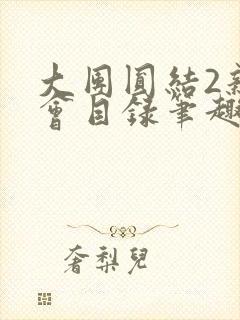 大團圓結2新
會目錄筆趣
奢梨兒